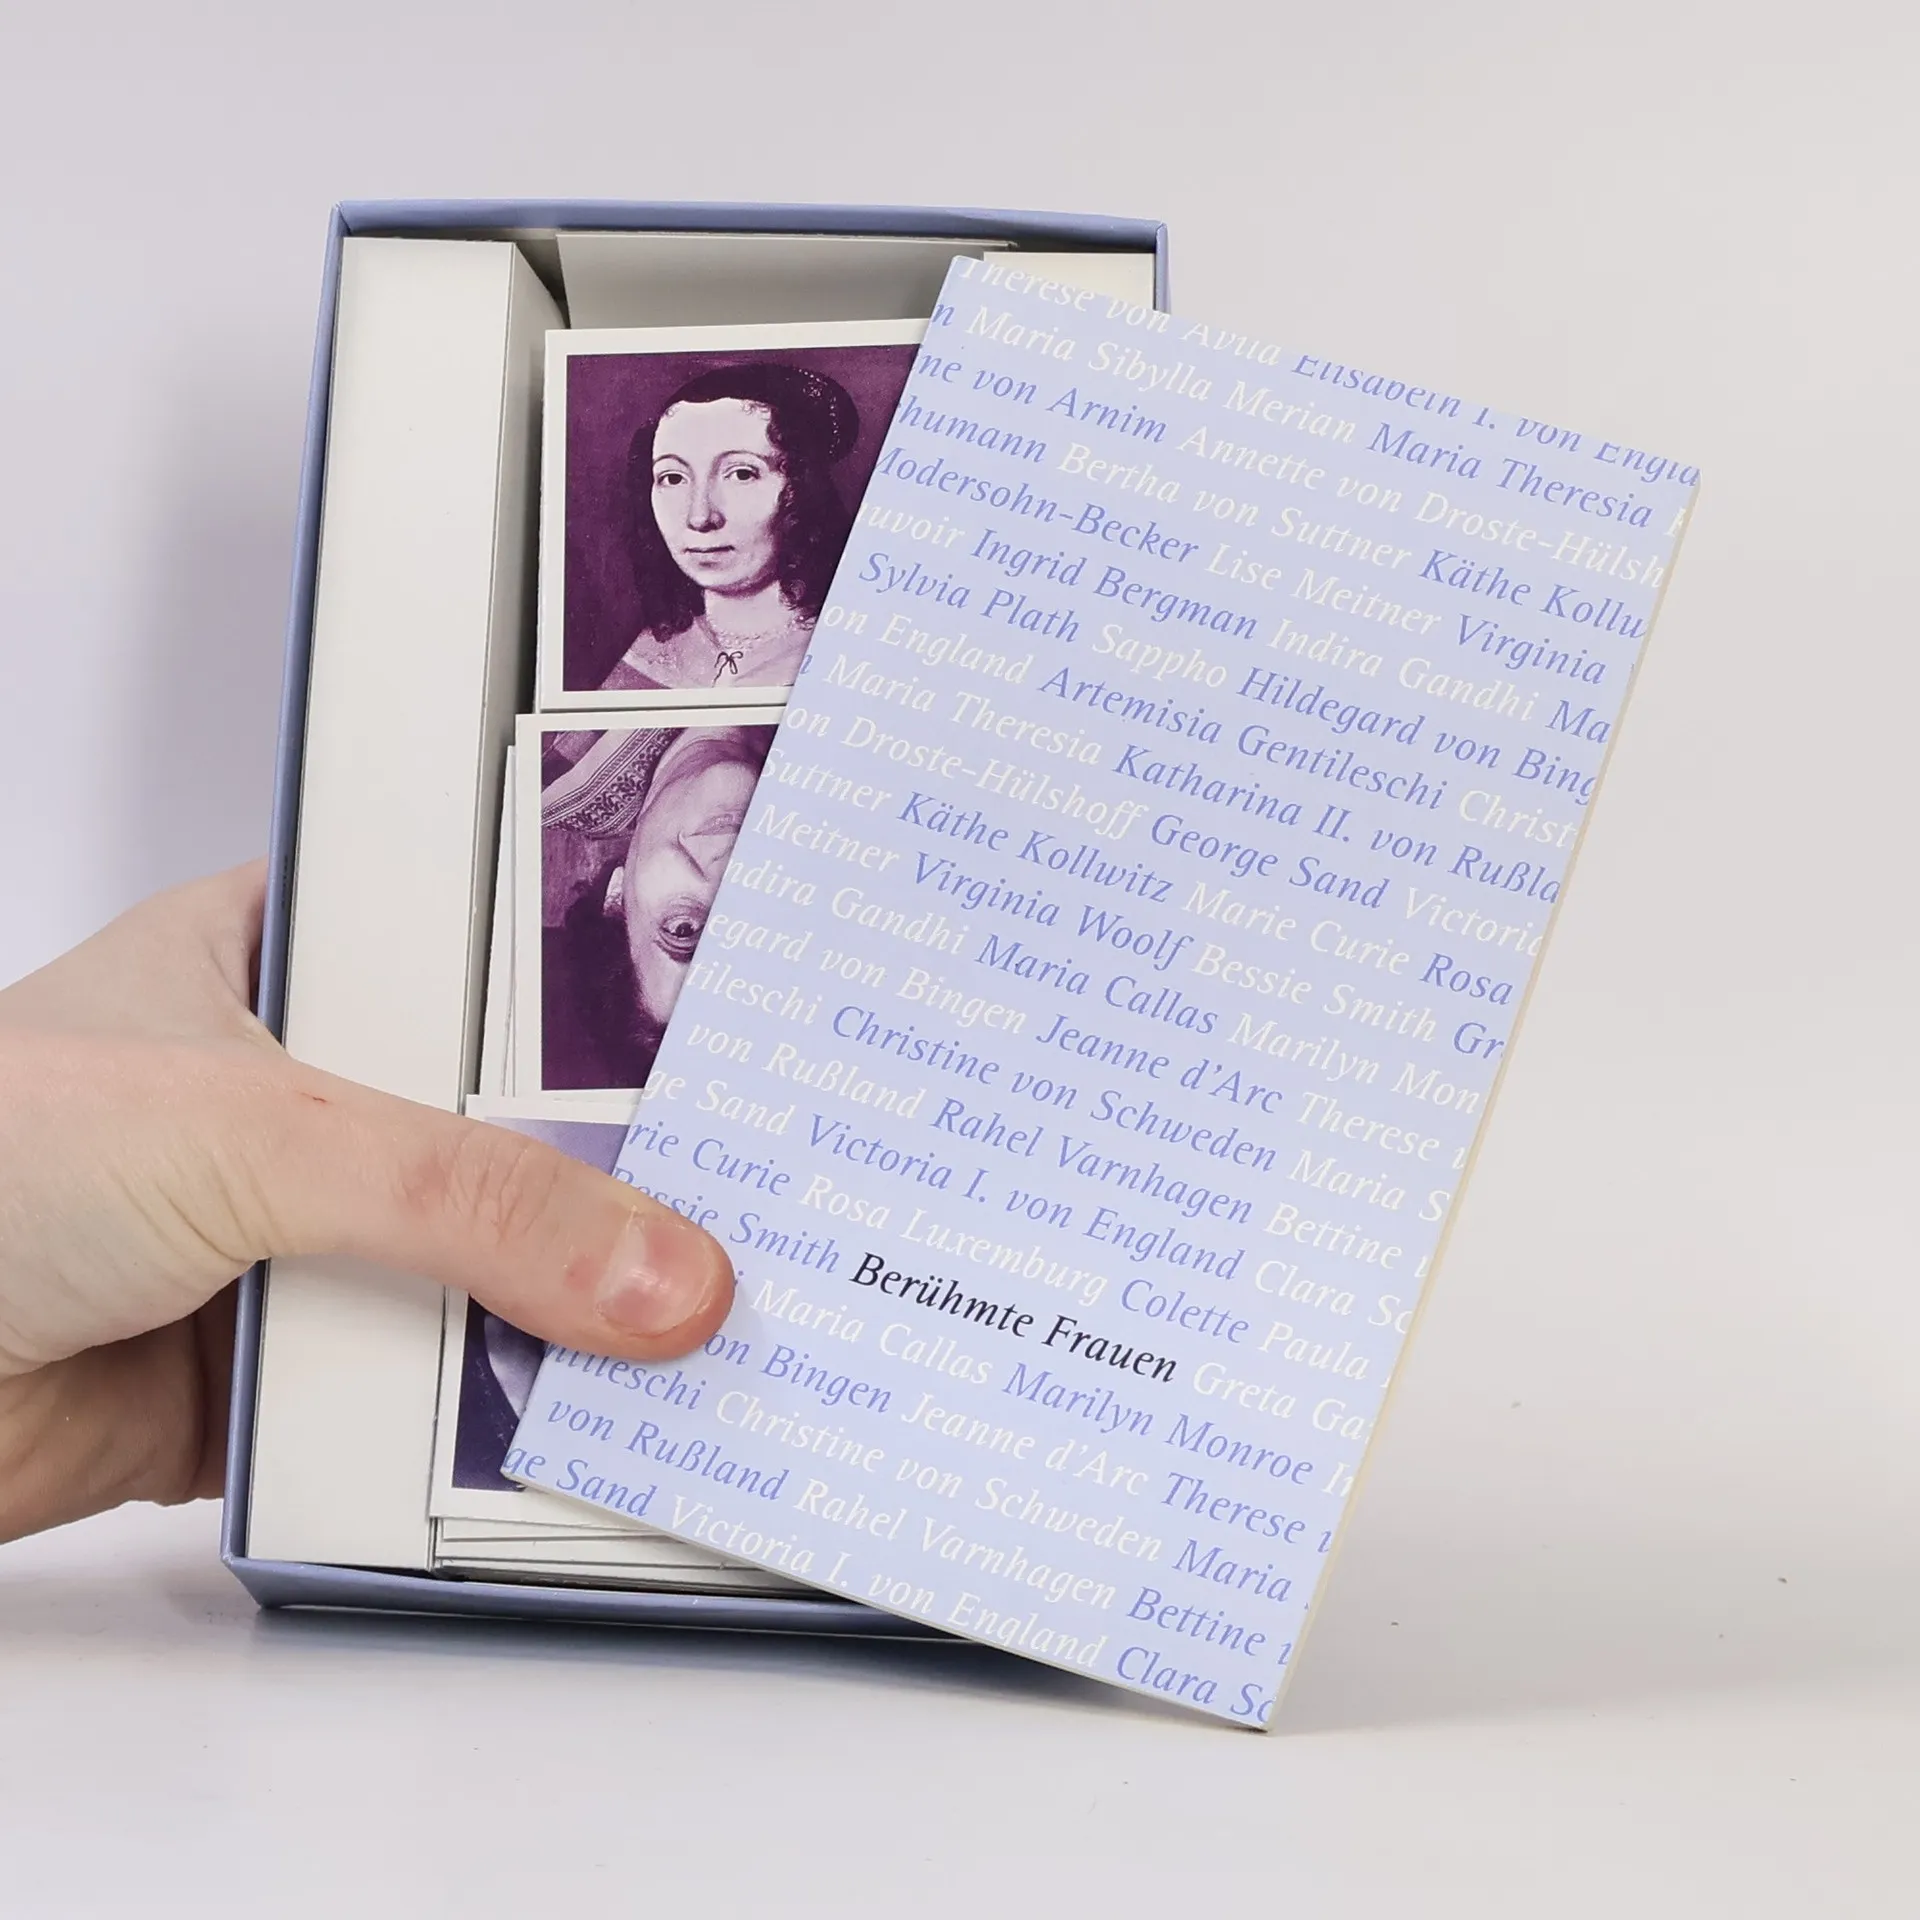 Therese von Avila Elisabeth I. von Engla
n Maria Sibylla Merian Maria Theresia K
ne von Arnim Annette von Droste-Hülsh
chumann Bertha von Suttner Käthe Kollw
Modersohn-Becker Lise Meitner Virginia
uvoir Ingrid Bergman Indira Gandhi Ma
Sylvia Plath Sappho Hildegard von Bing
on England Artemisia Gentileschi Christ
n Maria Theresia Katharina II. von Rußla
on Droste-Hülshoff George Sand Victoria
Suttner Käthe Kollwitz Marie Curie Rosa
Meitner Virginia Woolf Bessie Smith Gr
ndira Gandhi Maria Callas Marilyn Mon
egard von Bingen Jeanne d'Arc Therese v
tileschi Christine von Schweden Maria S
von Rußland Rahel Varnhagen Bettine v
ge Sand Victoria I. von England Clara Sc
rie Curie Rosa Luxemburg Colette Paula
Bessie Smith Berühmte Frauen Greta Ga
i Maria Callas Marilyn Monroe In
on Bingen Jeanne d'Arc Therese v
ntileschi Christine von Schweden Maria
von Rußland Rahel Varnhagen Bettine v
ge Sand Victoria I. von England Clara Sc